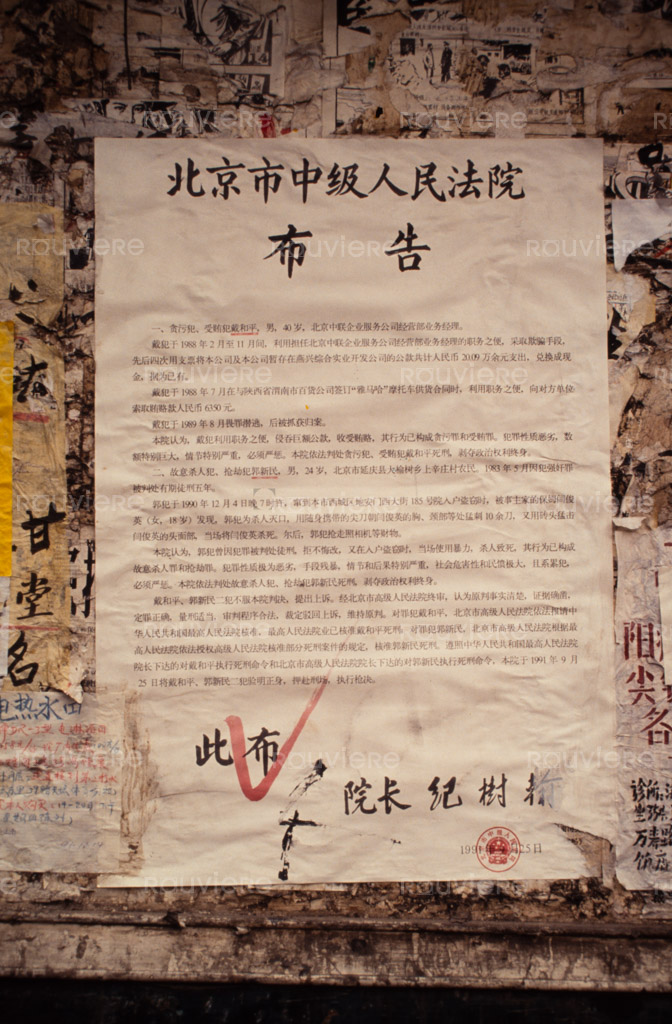 北京市中级人民法院
布 告
一、贪污犯、受贿犯戴和平,男,40岁,北京中联企业服务公司经营部业务经理。
戴犯于1988年2月至11月间,利用担任北京中联企业服务公司经营部业务经理的职务便,采取欺骗手段,
先后四次用支票将本公司及本公司暂存在燕兴综合实业开发公司的公款共计人民币20.09万余元支出,兑换成现
金,据为己有。
戴犯于1988年7月在与陕西省渭南市百货公司签订“雅马哈”摩托车供货合同时,利用职务之便,向对方单位
索取贿赂款人民币6350元。
戴犯于1989年8月畏罪潜逃,后被抓获归案。
本院认为,戴犯利用职务之便,侵吞巨额公款,收受贿赂,其行为已构成贪污罪和受贿罪。犯罪性质恶劣,数
额特别巨大,情节特别严重,必须严惩。本院依法判处贪污犯、受贿犯戴和平死刑,剥夺政治权利终身。
二、故意杀人犯、抢劫犯郭新民,男,24岁,北京市延庆县大榆树乡上辛庄村农民。1983年5月因犯强奸罪
被判处有期徒刑五年。
郭犯于1990年12月4日晚7时许,窜到本市西城区地安门西大街185号院入户盗窃时,被事主家的保姆闫俊
英(女,18岁)发现,郭犯为杀人灭口,用随身携带的尖刀朝闫俊英的胸、颈部等处猛刺10余刀,又用砖头猛击
闫俊英的头面部,当场将闫俊英杀死。尔后,郭犯抢走照相机等财物。
本院认为,郭犯曾因犯罪被判处徒刑,拒不悔改,又在入户盗窃时,当场使用暴力,杀人致死,其行为已构成
故意杀人罪和抢劫罪。犯罪性质极为恶劣,手段残暴,情节和后果特别严重,社会危害性和民愤极大,且系累犯,
必须严惩。本院依法判处故意杀人犯、抢劫犯郭新民死刑,剥夺政治权利终身。
戴和平、郭新民二犯不服本院判决,提出上诉。经北京市高级人民法院终审,认为原判事实清楚,证据确凿,
定罪正确,量刑适当,审判程序合法,裁定驳回上诉,维持原判。对罪犯戴和平,北京市高级人民法院依法报请中
华人民共和国最高人民法院核准,最高人民法院业已核准戴和平死刑;对罪犯郭新民,北京市高级人民法院根据最
高人民法院依法授权高级人民法院核准部分死刑案件的规定,核准郭新民死刑。遵照中华人民共和国最高人民法院
院长下达的对戴和平执行死刑命令和北京市高级人民法院院长下达的对郭新民执行死刑命令,本院于1991年9月
25日将戴和平、郭新民二犯验明正身,押赴刑场,执行枪决。
此布
院长 纪树
25日
甘
堂
名
电热水
阳
尖
名
rouviere